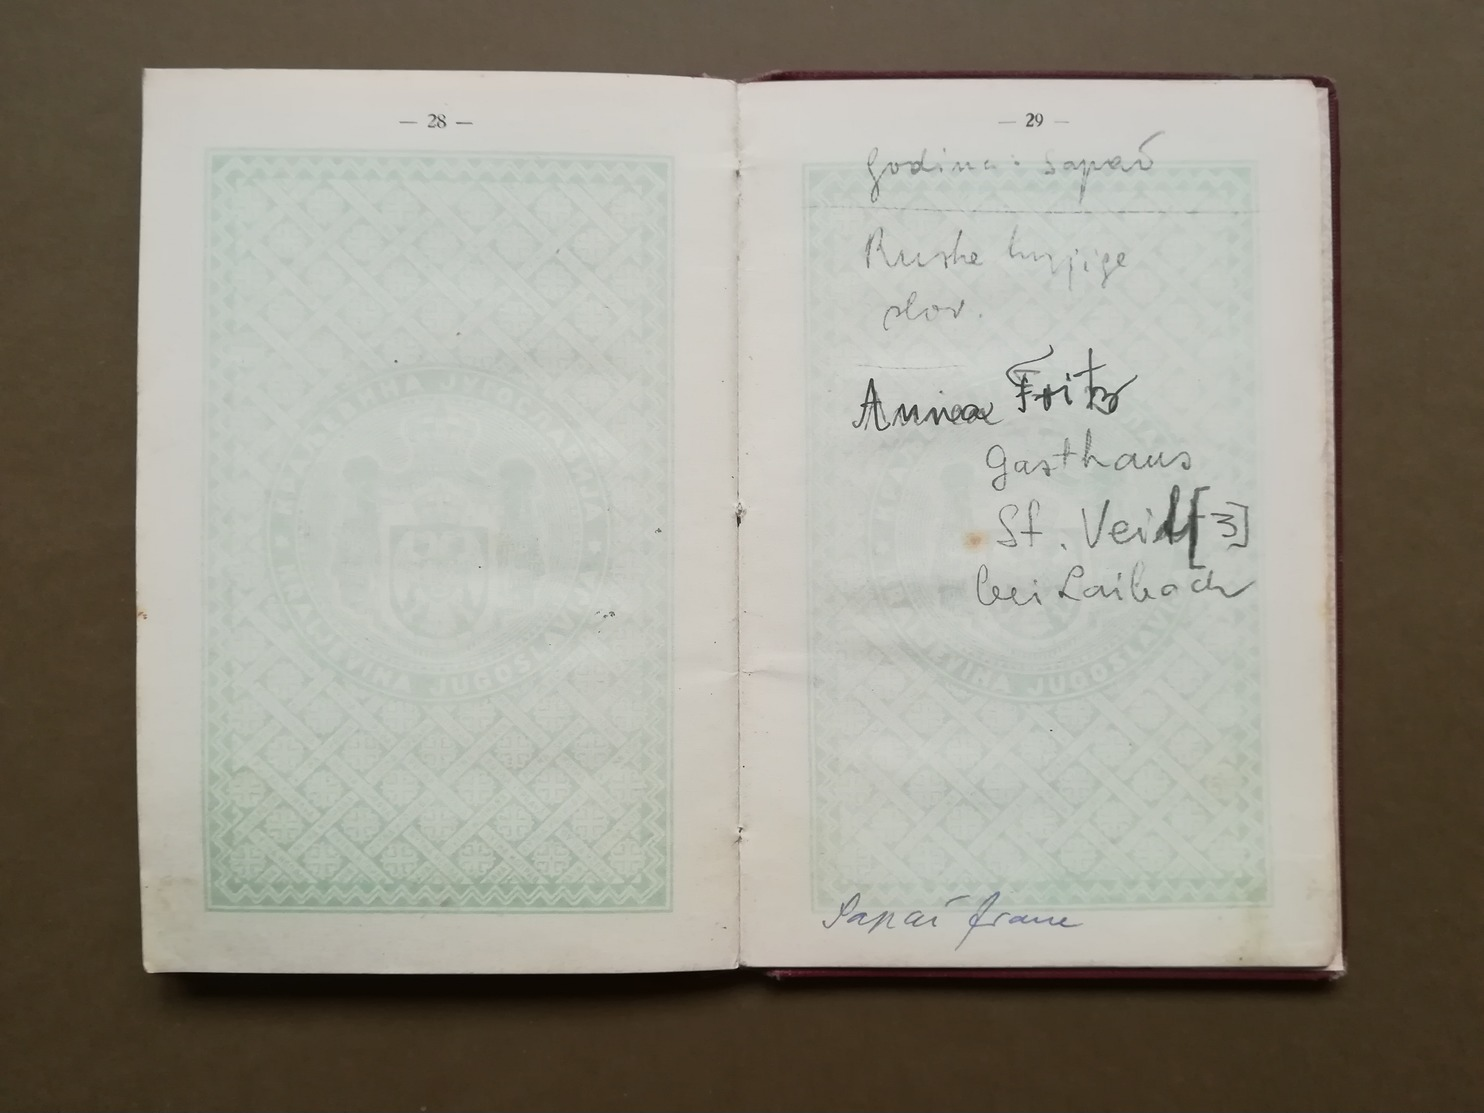 — 28 —
КРАЉЕВИНА ЈУГОСЛАВИЈА
KRALJEVINA JUGOSLAVIJA
— 29 —
Godina: Sapač
Ruske
slov.
Fritz
Gasthaus
St. Veit [3]
bei Laibach
КРАЉЕВИНА ЈУГОСЛАВИЈА
KRALJEVINA JUGOSLAVIJA
Sapač Franc